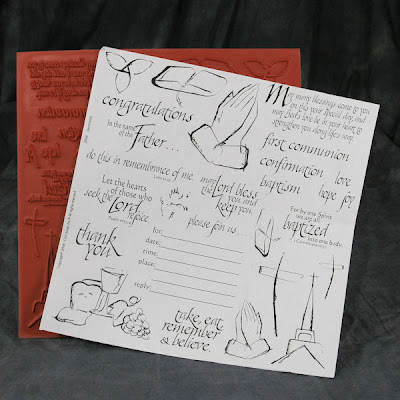 congratulations
In the name
of the
Father...
do this in remembrance of me.
Let the hearts
of those who
seek the Lord
rejoice.
thank
you
may
the Lord bless
you and
keep you.
please join us...
for:
date:
time:
place:
reply:
take, eat,
remember
& believe.
May many blessings come to you
on this your special day, and
may God's love be in your heart to
strengthen you along life's way.
first communion
confirmation love
baptism hope joy
For by one Spirit
we are all
baptized
into one body.